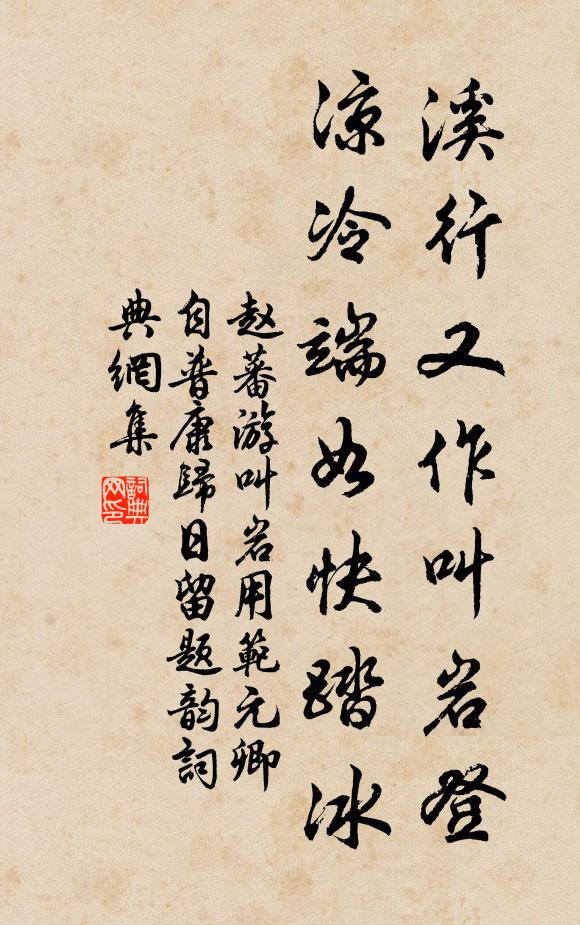 溪行又作叫岩登
凉冷端如快踏冰
赵蕃游叫岩用範元卿
自普康歸日留题韵詞
典網集
詞典
网印